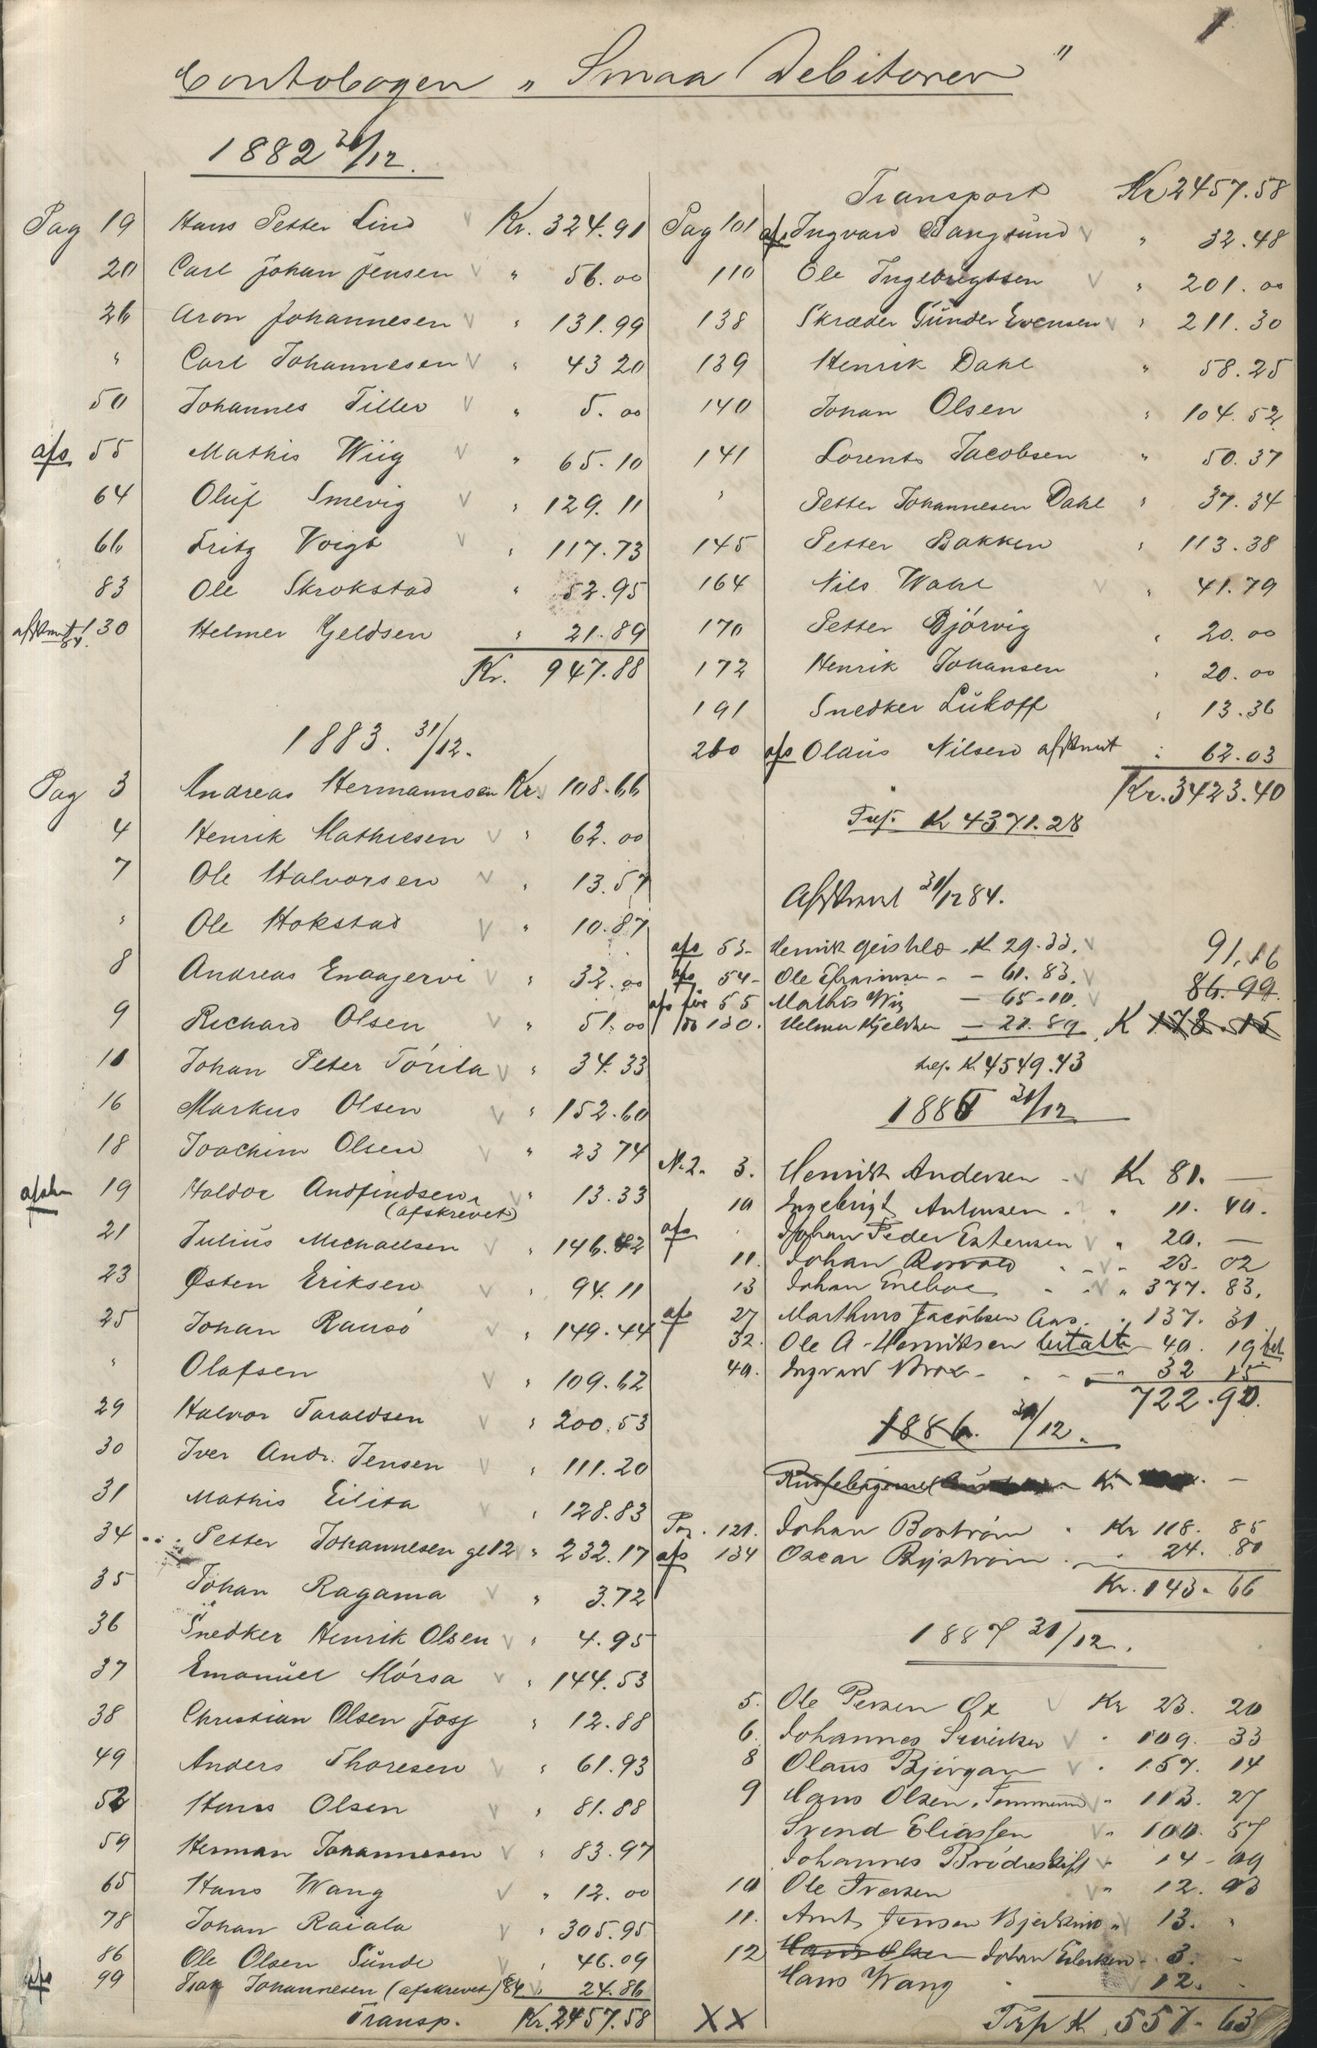 1
Contobogen „Smaa Debitorer"
1882 31/12.
Pag 19 Hans Petter Lind Kr. 324.91
20 Carl Johan Jensen " 56.00
26 Aron Johannesen " 131.99
" Carl Johannesen " 43 20
50 Johannes Tiller " 5.00
afs 55 Mathis Wiig " 65.10
64 Oluf Smevig " 129.11
66 Fritz Voigt " 117.73
83 Ole Skrokstad " 52.95
130 Helmer Jeldsen " 21.89
Kr. 947.88
1883. 31/12.
Pag 3 Andreas Hermannsen Kr. 108.66
4 Henrik Mathiesen " 62.00
7 Ole Halvorsen " 13.57
" Ole Hokstad " 10.87
8 Andreas Enaajervi " 32.00
9 Richard Olsen " 51.00
10 Johan Peter Törila " 34.33
16 Markus Olsen " 152.60
18 Joachim Olsen " 23 74
19 Haldor Andfindsen " 13.33
(afskrevet)
21 Julius Michaelsen " 146.82
23 Østen Eriksen " 94.11
25 Johan Rausö " 149.44
" Olafsen " 109.62
29 Halvor Taraldsen " 200.53
30 Iver Andr. Jensen " 111.20
31 Mathis Eilita " 128.83
34 Petter Johannesen " 232.17
35 Johan Ragama " 3.72
36 Snedker Henrik Olsen " 4.95
37 Emanuel Mörsa " 144.53
38 Christian Olsen Fosf " 12.88
49 Anders Thoresen " 61.93
52 Hans Olsen " 81.88
59 Herman Johannesen " 83.97
65 Hans Wang " 12.00
78 Johan Raiala " 305.95
86 Ole Olsen Sünde " 46.09
afs 99 Isak Johannesen (afskrevet) 84 " 24.86
Transp. Kr. 2457.58
Transport Kr 2457.58
Pag 101 afs Ingvard Bangsund " 32.48
110 Ole Ingebrigtsen " 201.00
138 Skræder Günder Evensen " 211.30
139 Henrik Dahl " 58.25
140 Johan Olsen " 104.52
141 Lorents Jacobsen " 50.37
" Petter Johannesen Dahl " 37.34
145 Petter Bakken " 113.38
164 Nils Wahl " 41.79
170 Petter Bjørvig " 20.00
172 Henrik Johansen " 20.00
191 Snedker Lükoff " 13.36
200 afs Olaüs Nilsen " 62.03
Kr. 3423.40
Trsp. Kr 4371.28
31/12 84.
afs 53 - Henrik K 29.33
afs 54 - Ole Efraimsen - 61.83
afs 55 Mathis Wig - 65.10
130. Helmer Kjeldsen - 21.89
91.16
86.99
K 178.15
trsp. K. 4549.43
1885 31/12
N. 2. 3. Henrik Andersen Kr 81. —
10 Ingebrigt Antonsen " 11. 40.
afs Johan Peder Estensen " 20. —
11. Johan " 23. 02
13 Johan Enebac " 377. 83.
afs 27 Marthins Jacobsen " 137. 31
32. Ole A. Henriksen betalt 40. 19
40. Ingvard Brox " 32 15
722.90
1886. 31/12.
Kr —
Pag. 121. Johan Boström " Kr 118. 85
afs 134 Oscar Byström " 24. 80
Kr. 143. 66
1887 31/12.
5. Ole Persen Ox Kr 23. 20
6. Johannes " 109. 33
8 Olaus Bjergan " 157. 14
9 Hans Olsen, " 113. 27
Svend Eliassen " 100. 57
Johannes Brödreskift " 14 - 09
10 Ole Iversen " 12. 93
11. Arnt Jensen " 13. "
12 Hans Olsen Johan 3. -
Hans Wang " 12. -
XX
Trsp K 557. 63